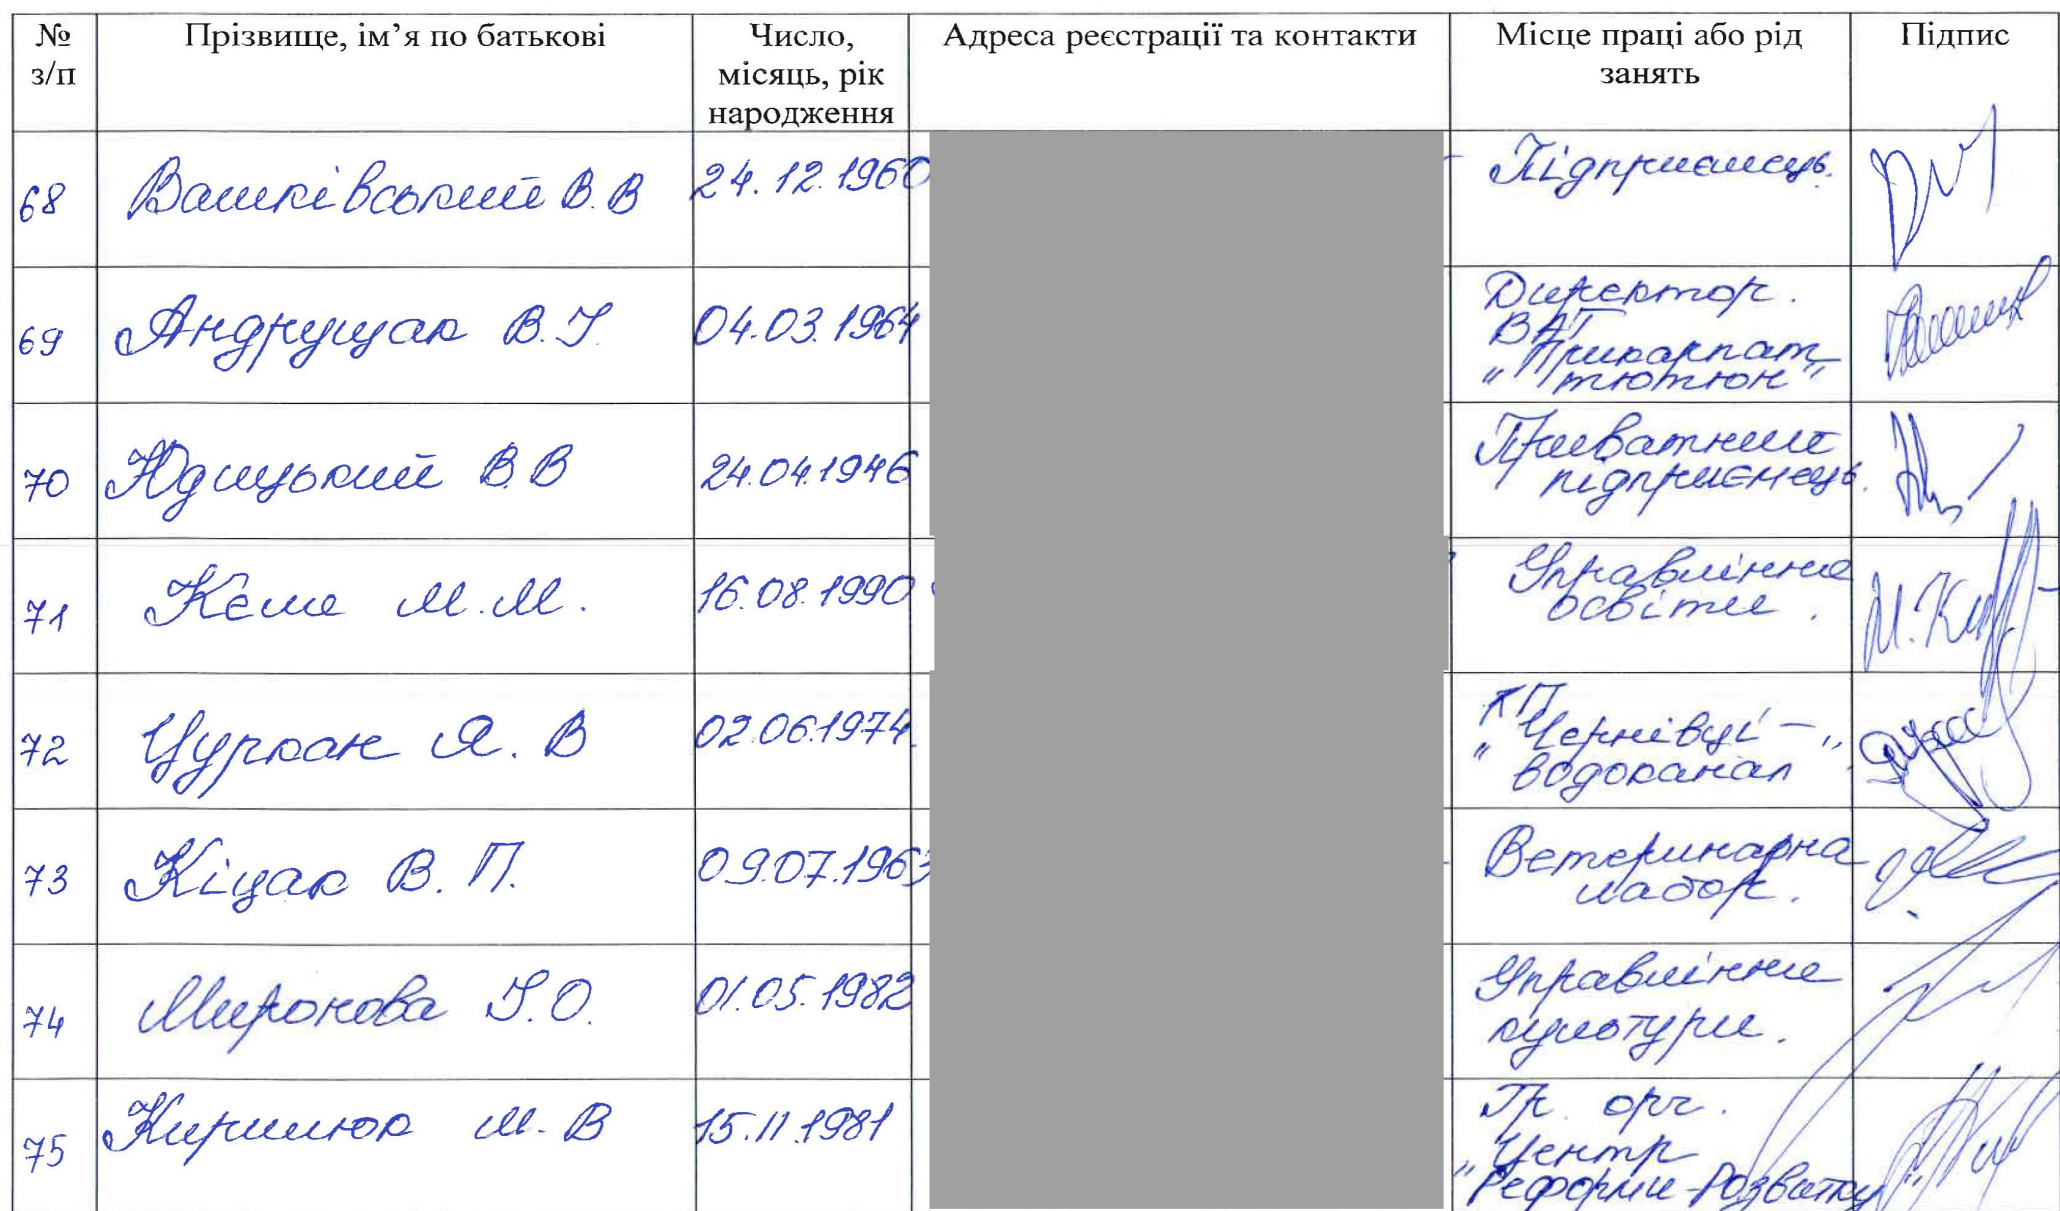 № з/п Прізвище, ім’я по батькові Число, місяць, рік народження Адреса реєстрації та контакти Місце праці або рід занять Підпис
68 Вашківський В.В 24.12.1960 Підприємець.
69 Андрущак В.І. 04.03.1964 Директор.
ВАТ
"Прикарпат
тютюн"
70 Юдицький В.В 24.04.1946 Приватний
підприємець.
71 Кєше М.М. 16.08.1990 Управління
освіти.
72 Цуркан Я. В 02.06.1974. КП
"Чернівці-
водоканал"
73 Кіцак В. П. 09.07.1963 Ветеринарна
лабор.
74 Миронова І.О. 01.05.1982 Управління
культури.
75 Кирилюк М. В 15.11.1981 Гр. орг.
Центр
"Реформи-Розвитку"